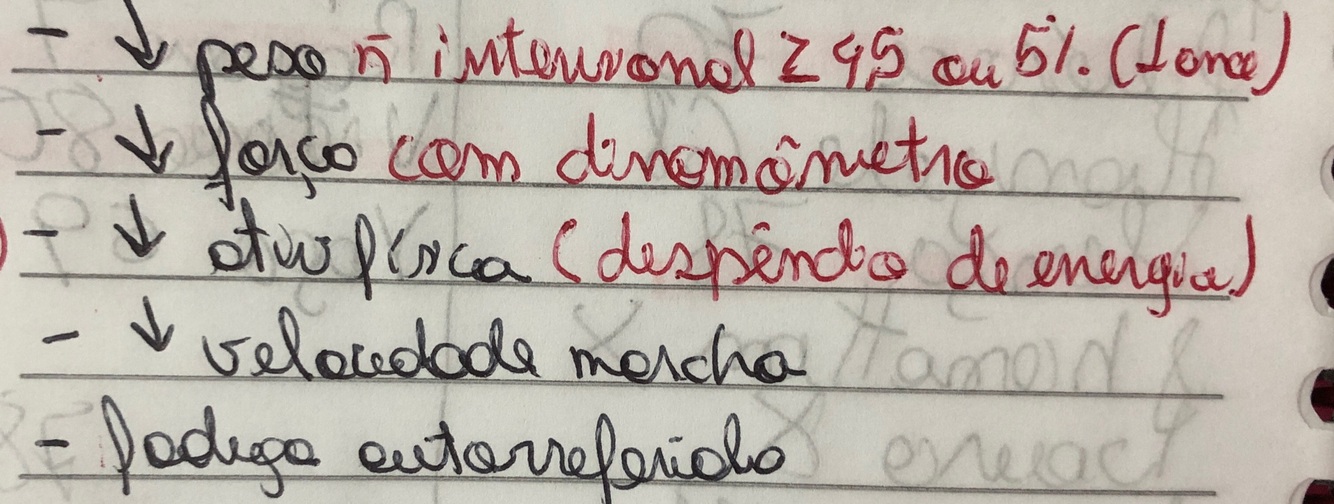 - ↓ peso ñ intencional ≥ 4,5 ou 5% (1 ano)
- ↓ força com dinamômetro
- ↓ ativ física (despêndio de energia)
- ↓ velocidade marcha
- fadiga autorreferida